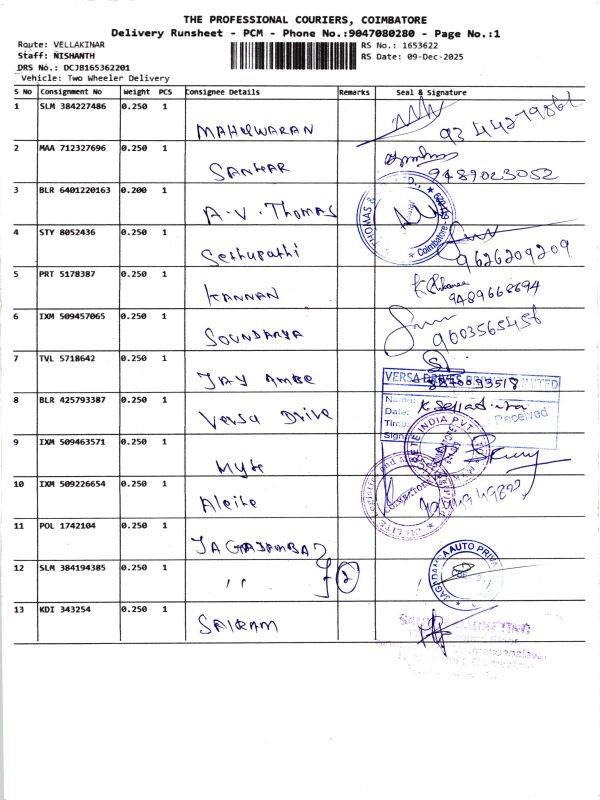 THE PROFESSIONAL COURIERS, COIMBATORE
Delivery Runsheet - PCM - Phone No.:9047080280 - Page No.:1
Route: VELLAKINAR RS No.: 1653622
Staff: NISHANTH RS Date: 09-Dec-2025
DRS No.: DCJB165362201
Vehicle: Two Wheeler Delivery
S No Consignment No Weight PCS Consignee Details Remarks Seal & Signature
1 SLM 384227486 0.250 1
MAHESWARAN
2 MAA 712327696 0.250 1
SANKAR 9489023052
3 BLR 6401220163 0.200 1
A.V. Thomas THOMAS & Coimbatore
4 STY 8052436 0.250 1
Sethupathi 9626209209
5 PRT 5178387 0.250 1
KANNAN 9489668694
6 IXM 509457065 0.250 1
SOUNDARYA 9003565456
7 TVL 5718642 0.250 1
JAY Ambe
VERSA DRIVES LIMITED
8 BLR 425793387 0.250 1
Versa Drive
Name:
Date:
Time: Received
Sign
9 IXM 509463571 0.250 1
Myte INDIA PVT
10 IXM 509226654 0.250 1
Aleite
11 POL 1742104 0.250 1
JAGADAMBA
12 SLM 384194385 0.250 1
" 2 JAGADAMBA AUTO PRIVA
13 KDI 343254 0.250 1
SAIRAM